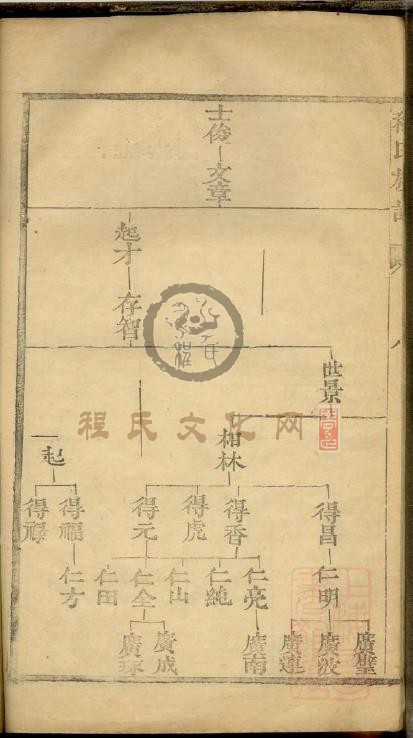 程氏族譜
八
士俊
文章
起才
存智
世景
柏林
一起
得昌
得香
得虎
得元
得福
得祿
仁明
仁亮
仁純
仁山
仁全
仁田
仁方
廣璧
廣波
廣連
廣南
廣成
廣琢
程氏文化网
程氏